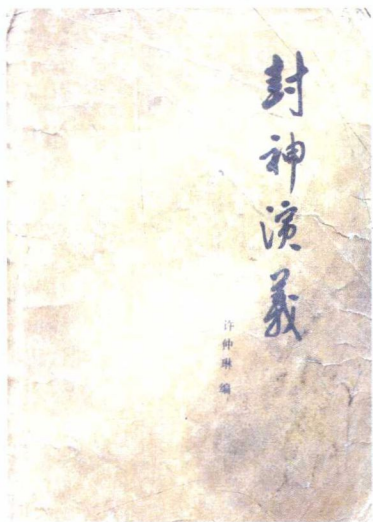 封神演義
许仲琳 编